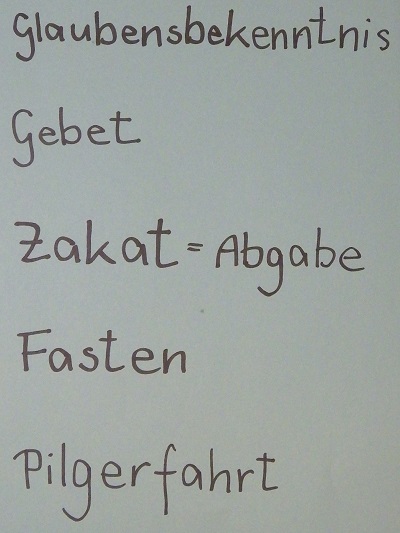 Glaubensbekenntnis
Gebet
Zakat = Abgabe
Fasten
Pilgerfahrt